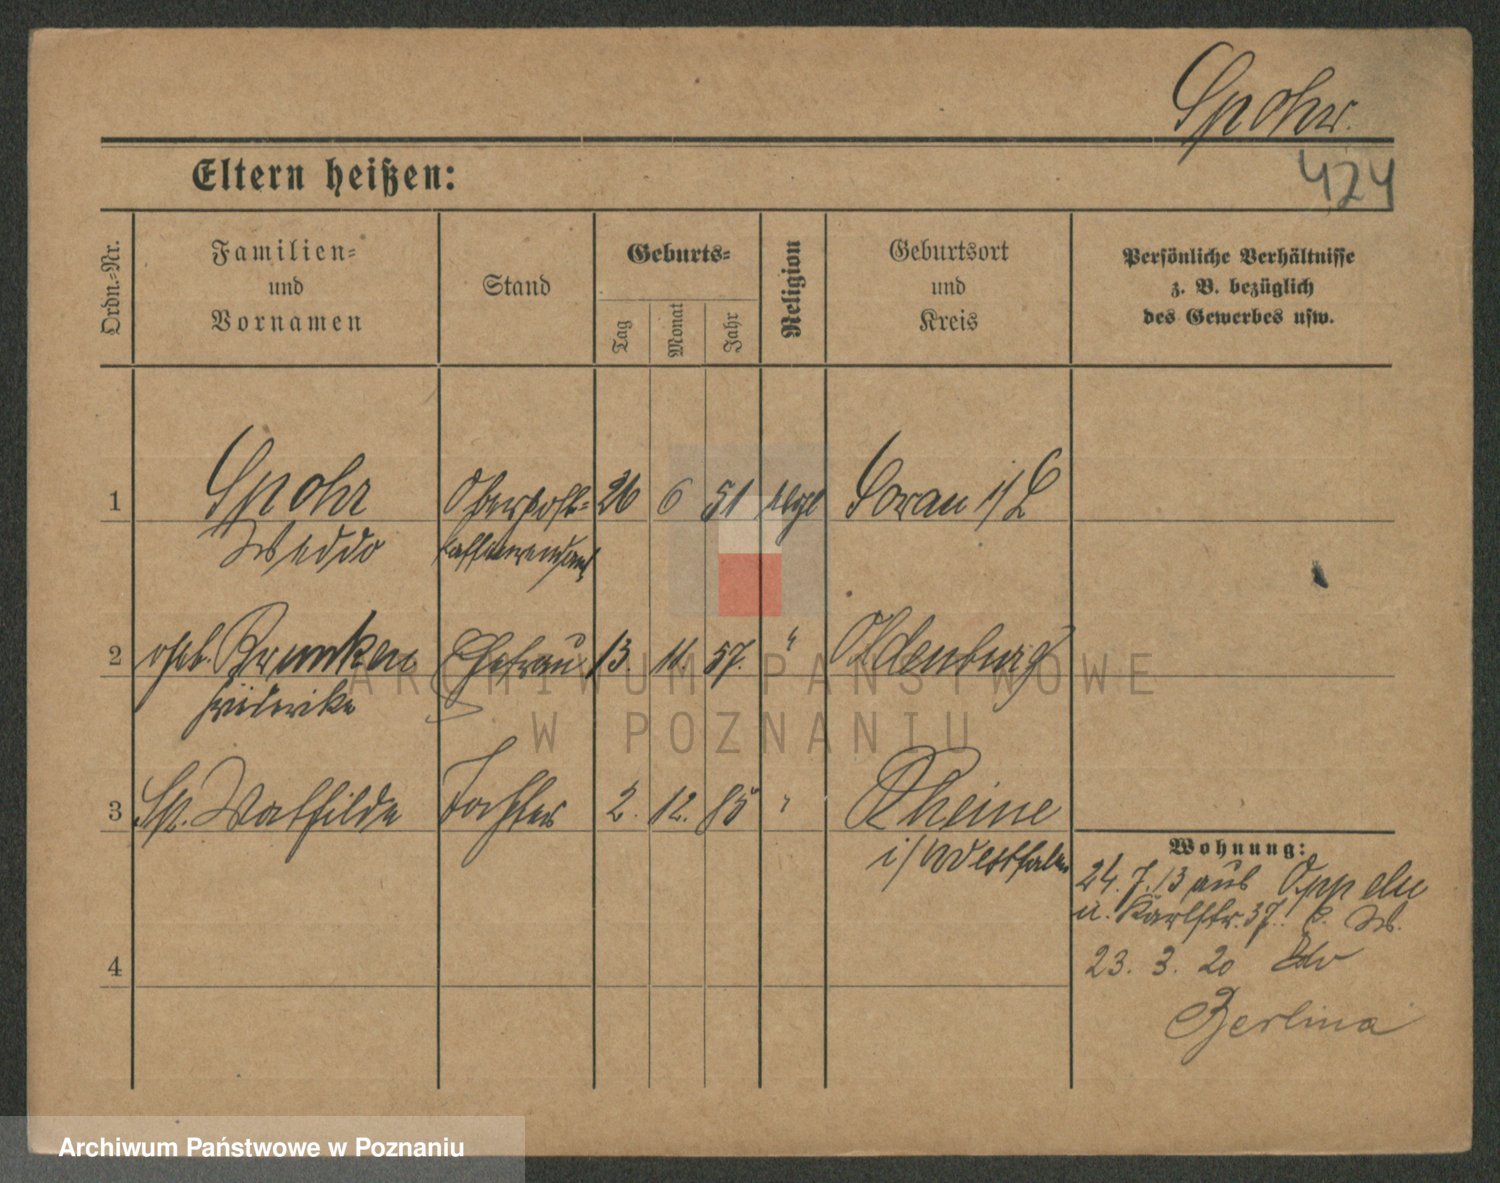 Spohr.
424
Eltern heißen:
Ordn.=Nr.
Familien=
und
Vornamen
Stand
Geburts=
Tag
Monat
Jahr
Religion
Geburtsort
und
Kreis
Persönliche Verhältnisse
z. B. bezüglich
des Gewerbes usw.
1 Spohr Oberpost= 26 6 51 Sorau i/L
Weddo
2 geb. Brunken Ehefrau 13. 11. 57. " Oldenburg
Friederike
3 Sp. Mathilde Tochter 2. 12. 85 " Rheine
i/Westfalen
4
Wohnung:
24. 7. 13 aus Oppeln
n. Karlstr. 37.
23. 3. 20
Berlina
ARCHIWUM PAŃSTWOWE
W POZNANIU
Archiwum Państwowe w Poznaniu